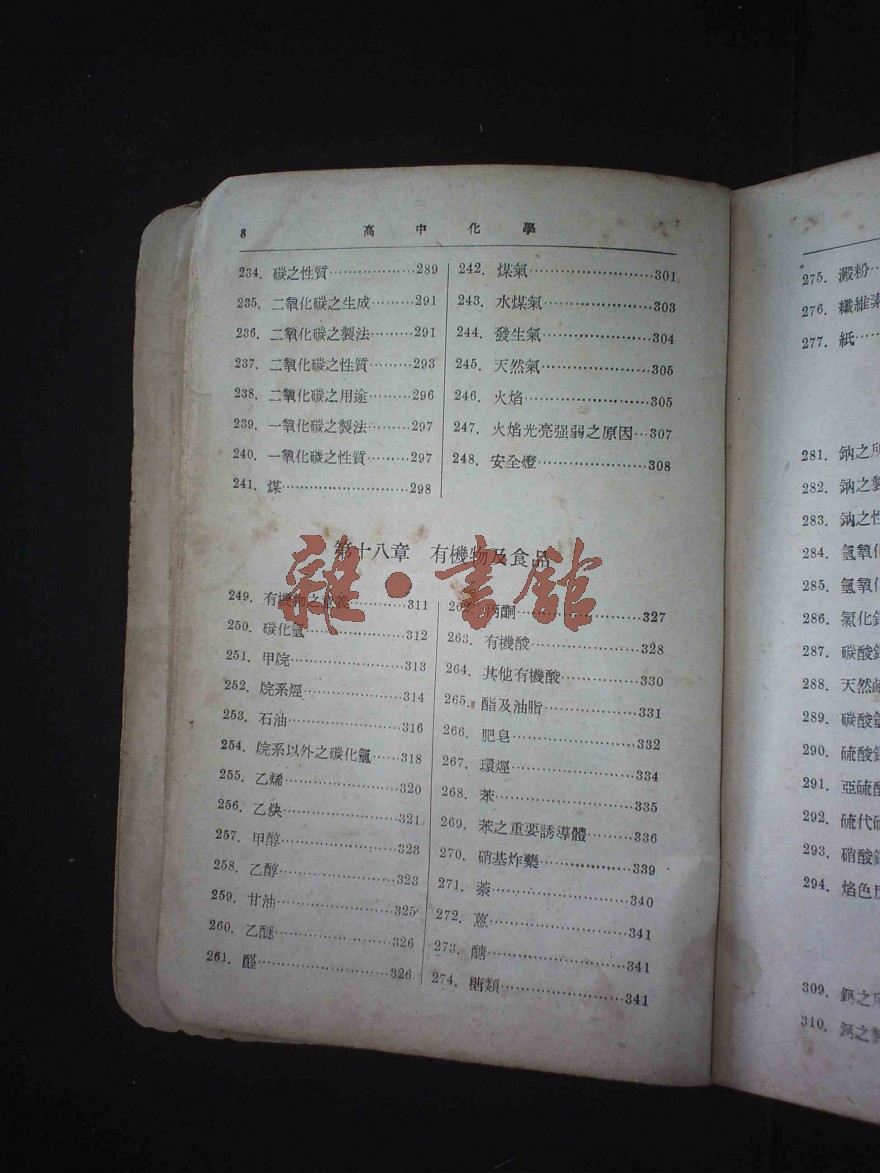 8 高中化學
234. 碳之性質················289
235. 二氧化碳之生成·········291
236. 二氧化碳之製法·········291
237. 二氧化碳之性質·········293
238. 二氧化碳之用途·········296
239. 一氧化碳之製法·········297
240. 一氧化碳之性質·········297
241. 煤························298
242. 煤氣·······················301
243. 水煤氣····················303
244. 發生氣····················304
245. 天然氣····················305
246. 火焰·······················305
247. 火焰光亮强弱之原因···307
248. 安全燈····················308
第十八章 有機物及食品
249. 有機物之意義············311
250. 碳化氫····················312
251. 甲烷·······················313
252. 烷系烴····················314
253. 石油·······················316
254. 烷系以外之碳化氫······318
255. 乙烯·······················320
256. 乙炔·······················321
257. 甲醇·······················323
258. 乙醇·······················323
259. 甘油·······················325
260. 乙醚·······················326
261. 醛··························326
262. 丙酮·······················327
263. 有機酸····················328
264. 其他有機酸···············330
265. 酯及油脂·················331
266. 肥皂·······················332
267. 環烴·······················334
268. 苯··························335
269. 苯之重要誘導體·········336
270. 硝基炸藥·················339
271. 萘··························340
272. 蒽··························341
273. 醣··························341
274. 糖類·······················341
雜·書館
275. 澱粉
276. 纖維素
277. 紙
281. 鈉之所
282. 鈉之製
283. 鈉之性
284. 氫氧化
285. 氫氧化
286. 氯化鈉
287. 碳酸鈉
288. 天然鹼
289. 碳酸氫
290. 硫酸鈉
291. 亞硫酸
292. 硫代硫
293. 硝酸鈉
294. 焰色反
309. 鈣之所
310. 鈣之製